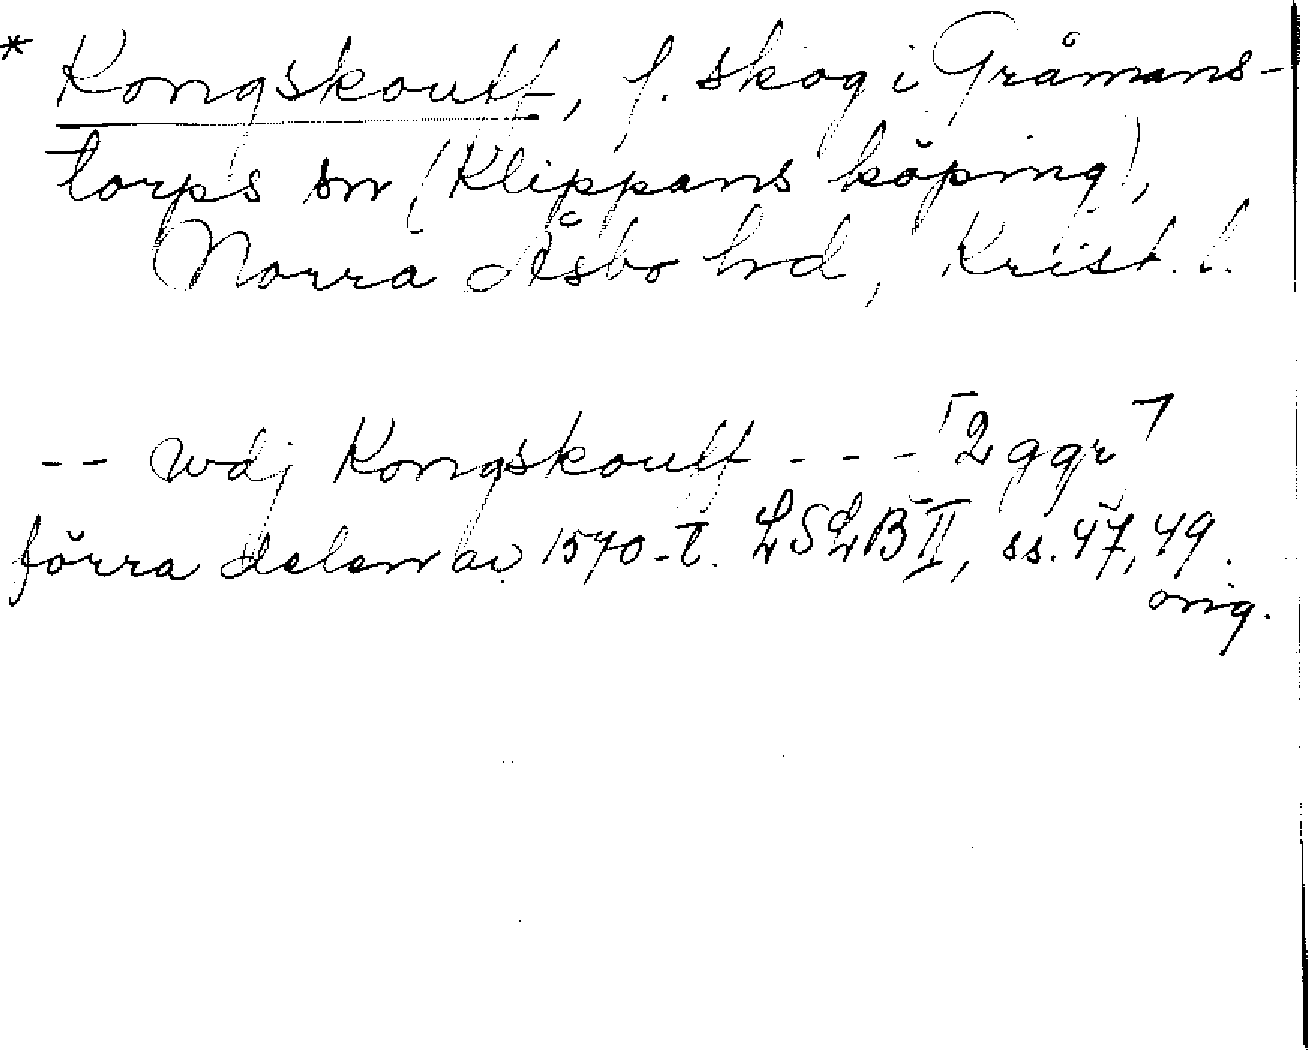 * Kongskouff, f. skog i Gråmans-
torps sn (Klippans köping),
Norra Åsbo hrd, Krist. l.
-- wdj Kongskouff --- ⌈2 ggr⌉
förra delen av 1570-t. LSLB II, ss. 47, 49.
orig.